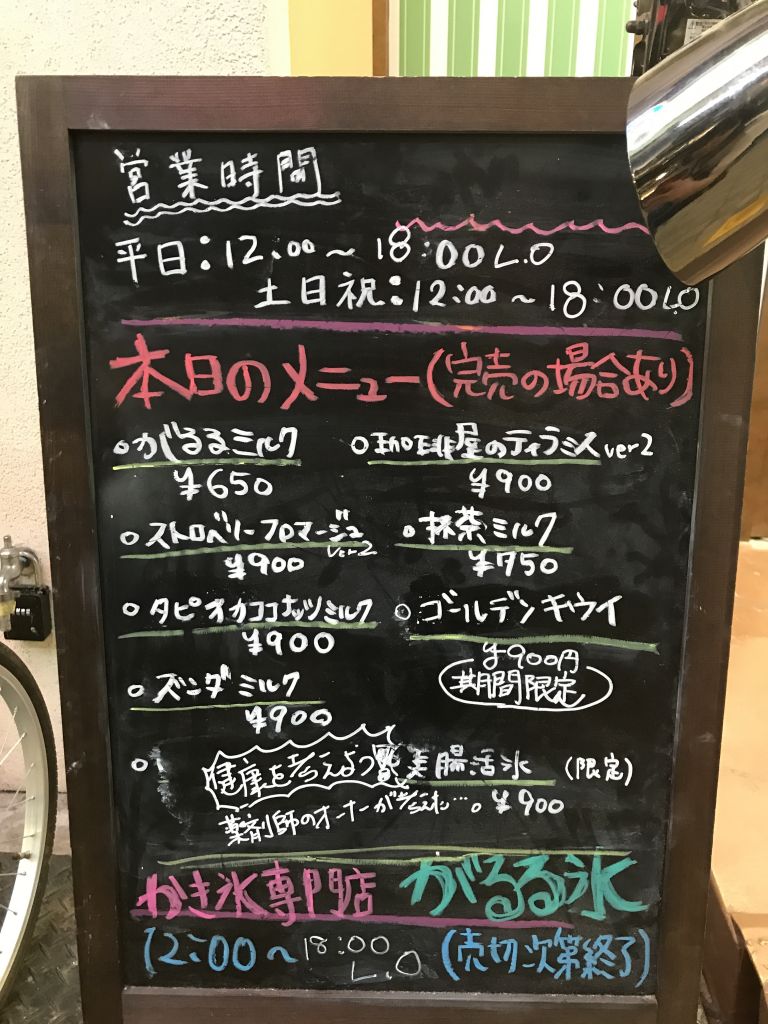 営業時間
平日:12:00～18:00L.O
土日祝:12:00～18:00L.O
本日のメニュー(完売の場合あり)
がるるミルク
¥650
珈琲屋のティラミスver2
¥900
ストロベリーフロマージュver2
¥900
抹茶ミルク
¥750
タピオカココナッツミルク
¥900
ゴールデンキウイ
¥900円
期間限定
ズンダミルク
¥900
健康を考えよう
美腸活氷(限定)
薬剤師のオーナーが考えた…。¥900
かき氷専門店 がるる氷
12:00～18:00L.O(売切次第終了)